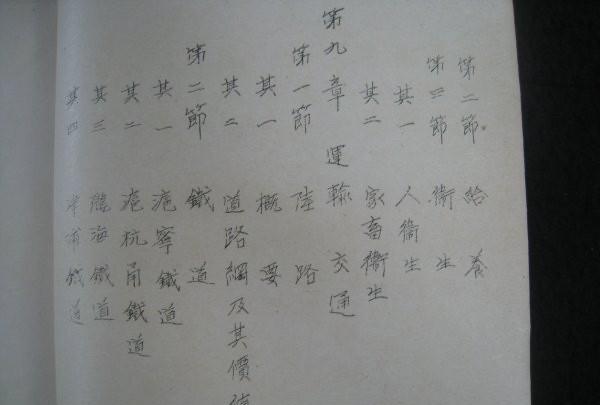 第二節 給養
第三節 衛生
其一 人衛生
其二 家畜衛生
第九章 運輸交通
第一節 陸路
其一 概要
其二 道路網及其價值
第二節 鐵道
其一 滬寧鐵道
其二 滬杭甬鐵道
其三 隴海鐵道
其四 津甫鐵道